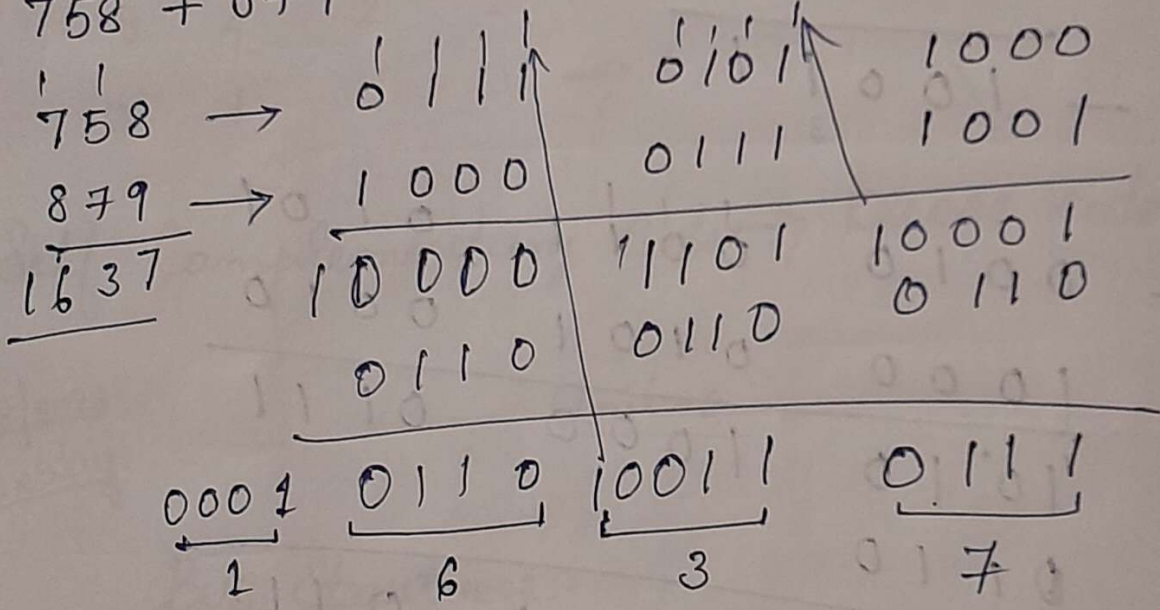 758 +
1 1 1 1 1 1 1 1 1 1
758 → 0111 0101 1000
879 → 1000 0111 1001
1637 10000 11101 10001
0110 0110 0110
0001 0110 10011 0111
1 6 3 7